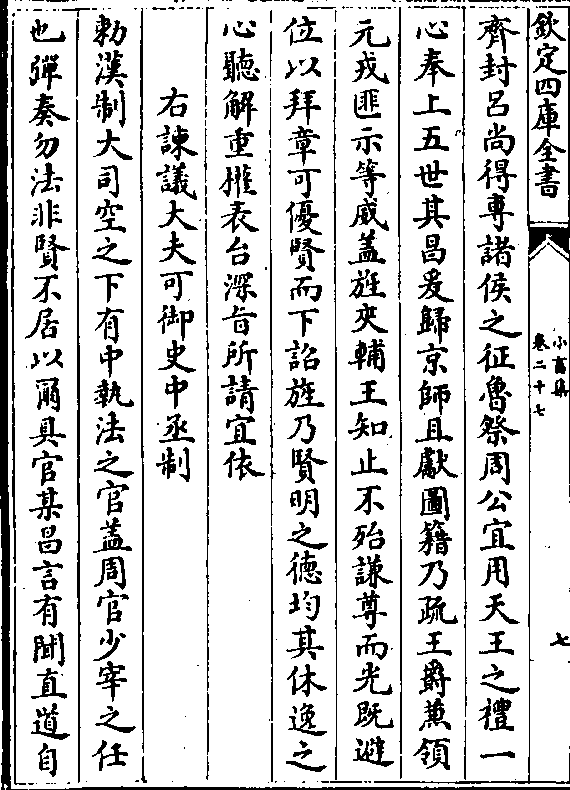 欽定四庫全書
小畜集
卷二十七
七
齊封呂尚得專諸侯之征魯祭周公宜用天王之禮一
心奉上五世其昌爰歸京師且獻圖籍乃疏王爵薫領
元戎匪示等威葢旌夾輔王知止不殆謙尊而光既避
位以拜章可優賢而下詔旌乃賢明之德均其休逸之
心聽解重權表台深旨所請宜依
右諫議大夫可御史中丞制
勅漢制大司空之下有中執法之官葢周官少宰之任
也彈奏勿法非賢不居以爾具官某昌言有聞直道自